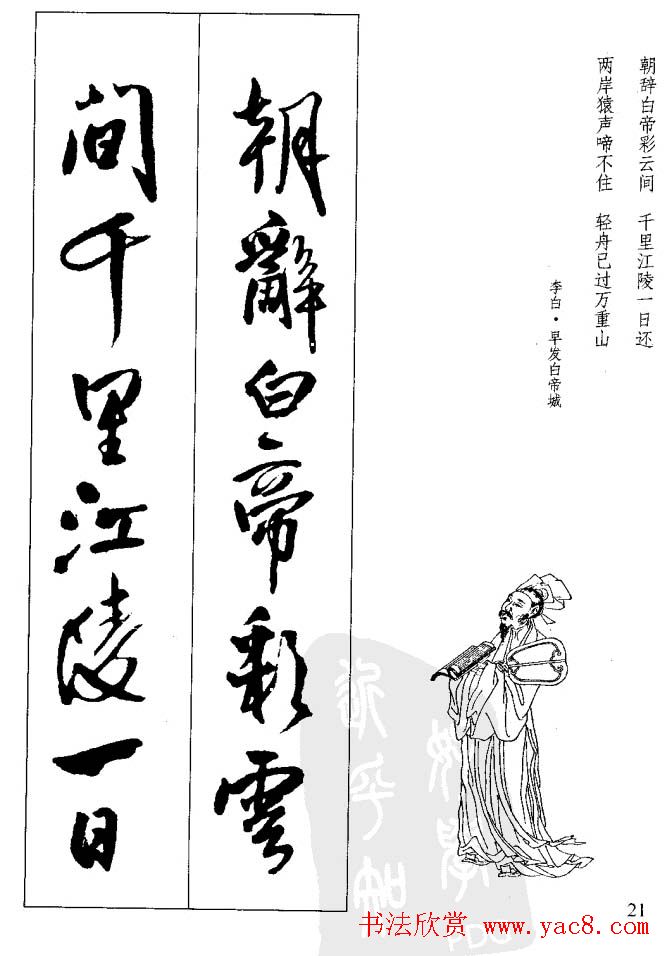 朝辞白帝彩云间 千里江陵一日还
两岸猿声啼不住 轻舟已过万重山
李白·早发白帝城
朝辭白帝彩雲
間千里江陵一日
21
书法欣赏 www.yac8.com
PDG